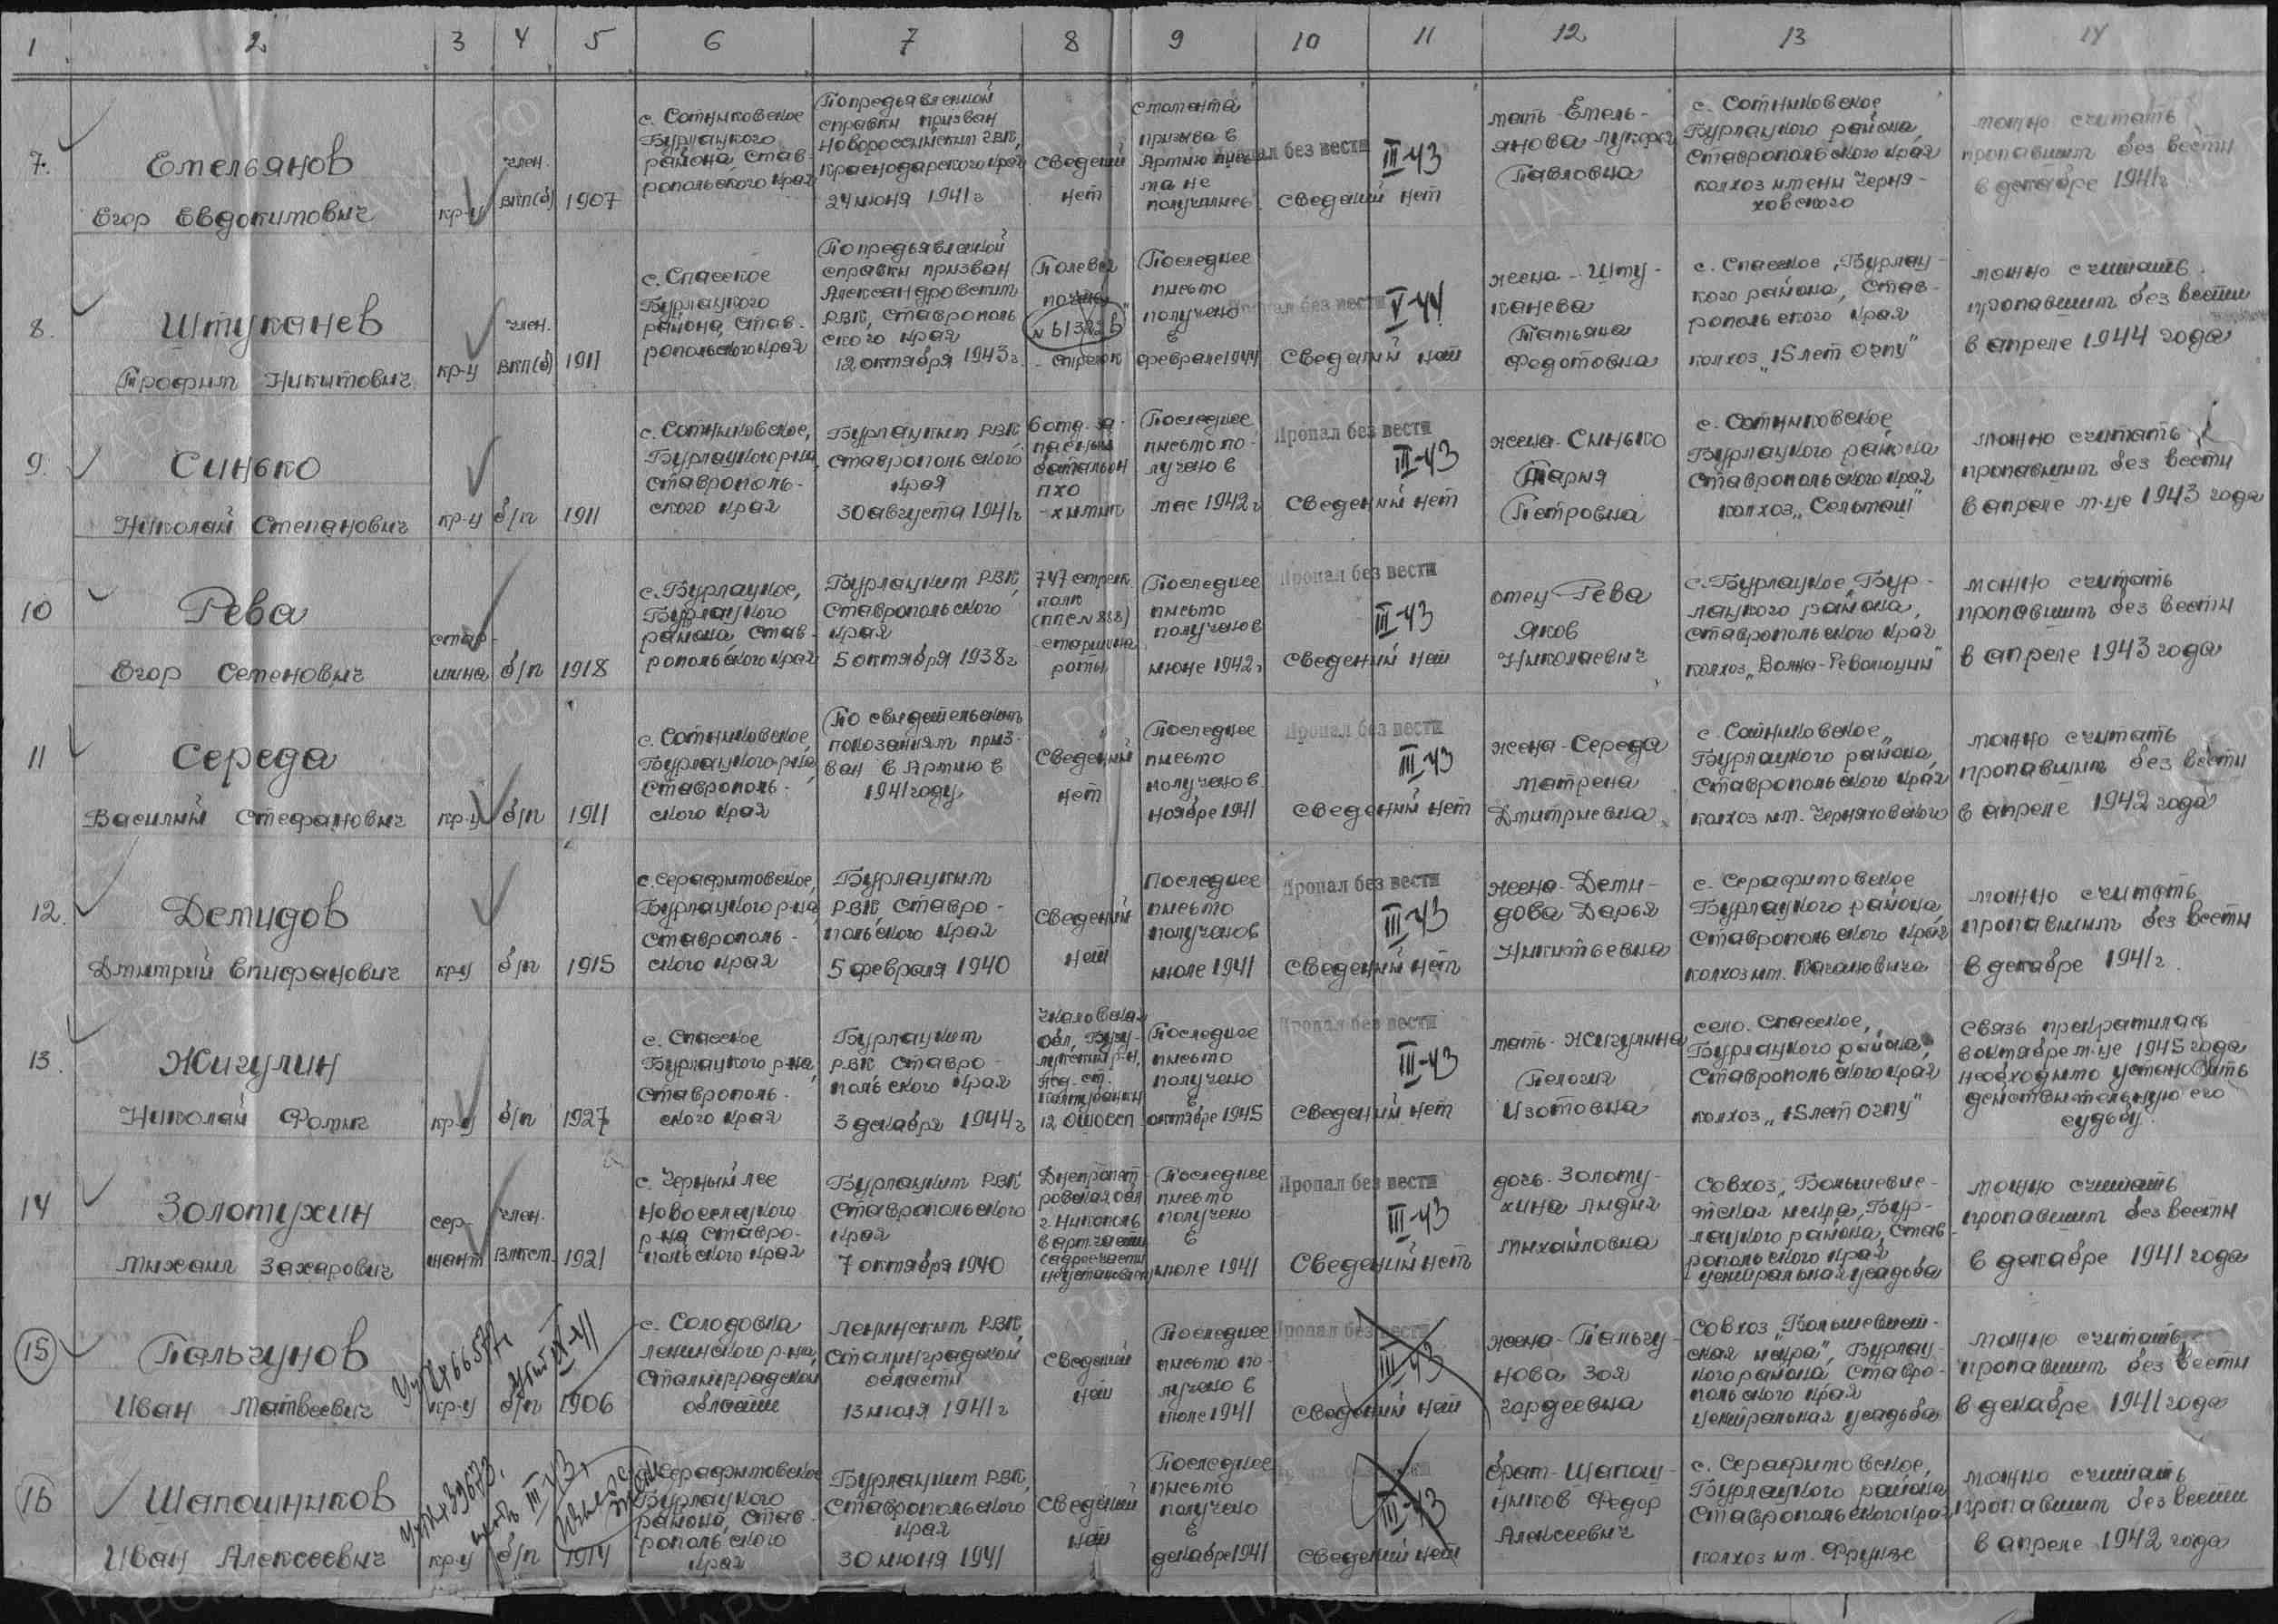 1 2 3 4 5 6 7 8 9 10 11 12 13 14
7.
Емельянов
Егор Евдокимович
кр-ц
член.
ВКП(б)
1907
с. Сотниковское
Бурлацкого
района, Став-
ропольского края
По предъявленной
справки призван
Новороссийским ГВК,
Краснодарского края
24 июня 1941 г
Сведений
нет
с момента
призыва в
Армию пись
ма не
получались
Пропал без вести
III-43
Сведений нет
мать - Емель-
янова
Павловна
с. Сотниковское
Бурлацкого района,
Ставропольского края
колхоз имени Черня-
ховского
можно считать
пропавшим без вести
в декабре 1941 г
8.
Штуканев
Трофим Никитович
кр-ц
член.
ВКП(б)
1911
с. Спасское
Бурлацкого
района, Став-
ропольского края
По предъявленной
справки призван
Александровским
РВК, Ставрополь
ского края
12 октября 1943 г.
Полевая
почта
- стрелок
Последнее
письмо
получено
в
феврале 1944
Пропал без вести
V-44
Сведений нет
жена - Шту-
канева
Татьяна
Федотовна
с. Спасское, Бурлац-
кого района, Став-
ропольского края
колхоз „15 лет ОГПУ"
можно считать
пропавшим без вести
в апреле 1944 года
9.
Синько
Николай Степанович
кр-ц
б/п
1911
с. Сотниковское,
Бурлацкого р-на,
Ставрополь-
ского края
Бурлацким РВК
Ставропольского
края
30 августа 1941 г
6 отд. за-
пасный
батальон
ПХО
- химик
Последнее
письмо по-
лучено в
мае 1942 г
Пропал без вести
III-43
Сведений нет
жена - Синько
Мария
Петровна
с. Сотниковское
Бурлацкого района
Ставропольского края
колхоз „Сельмаш"
можно считать
пропавшим без вести
в апреле м-це 1943 года
10
Рева
Егор Семенович
стар-
шина
б/п
1918
с. Бурлацкое,
Бурлацкого
района, Став-
ропольского края
Бурлацким РВК,
Ставропольского
края
5 октября 1938 г
747 стрелк.
полк
(ППС N 828)
старшина
роты
Последнее
письмо
получено в
июне 1942 г
Пропал без вести
III-43
Сведений нет
отец Рева
Яков
Николаевич
с. Бурлацкое, Бур-
лацкого района,
Ставропольского края
колхоз „Волна-Революции"
можно считать
пропавшим без вести
в апреле 1943 года
11
Середа
Василий Стефанович
кр-ц
б/п
1911
с. Сотниковское,
Бурлацкого р-на,
Ставрополь-
ского края
По свидетельским
показаниям приз-
ван в Армию в
1941 году
Сведений
нет
Последнее
письмо
получено в
ноябре 1941
Пропал без вести
III-43
Сведений нет
жена - Середа
Матрена
Дмитриевна
с. Сотниковское,
Бурлацкого района,
Ставропольского края
колхоз им. Черняховского
можно считать
пропавшим без вести
в апреле 1942 года
12.
Демидов
Дмитрий Епифанович
кр-ц
б/п
1915
с. Серафимовское,
Бурлацкого р-на
Ставрополь-
ского края
Бурлацким
РВК, Ставро-
польского края
5 февраля 1940
Сведений
нет
Последнее
письмо
получено в
июле 1941
Пропал без вести
III-43
Сведений нет
жена - Деми-
дова Дарья
Никитьевна
с. Серафимовское
Бурлацкого района,
Ставропольского края,
колхоз им. Кагановича
можно считать
пропавшим без вести
в декабре 1941 г.
13.
Жигулин
Николай Фомич
кр-ц
б/п
1927
с. Спасское
Бурлацкого р-на,
Ставрополь-
ского края
Бурлацким
РВК Ставро-
польского края
3 декабря 1944 г
Чкаловская
обл, Бузу-
лукский р-н,
жд. ст.
Колтубанки
Последнее
письмо
получено
в
октябре 1945
Пропал без вести
III-43
Сведений нет
мать - Жигулина
Пелогия
Изотовна
село. Спасское,
Бурлацкого района,
Ставропольского края
колхоз „15 лет ОГПУ"
связь прекратилась
в октябре м-це 1945 года
необходимо установить
действительную его
судьбу
14
Золотухин
Михаил Захарович
сер-
жант
член.
ВЛКСМ
1921
с. Черный лес
Новоселецкого
р-на Ставро-
польского края
Бурлацким РВК
Ставропольского
края
7 октября 1940
Днепропет
ровская обл
г. Никополь
в арт. части
Последнее
письмо
получено
в
июле 1941
Пропал без вести
III-43
Сведений нет
дочь - Золоту-
хина Лидия
Михайловна
Совхоз „Большевис-
тская искра, Бур-
лацкого района, Став
ропольского края
центральная усадьба
можно считать
пропавшим без вести
в декабре 1941 года
15
Пальчунов
Иван Матвеевич
кр-ц
б/п
1906
с. Солодовка
Ленинского р-на,
Сталинградской
области
Ленинским РВК,
Сталинградской
области
13 июля 1941 г
Сведений
нет
Последнее
письмо по-
лучено в
июле 1941
Пропал без вести
III-43
Сведений нет
жена - Пальчу-
нова Зоя
Гордеевна
Совхоз „Большевист-
ская искра", Бурлац-
кого района Ставро-
польского края
центральная усадьба
можно считать
пропавшим без вести
в декабре 1941 года
16
Шапошников
Иван Алексеевич
кр-ц
б/п
1914
III-43,
с. Серафимовское
Бурлацкого
района, Став-
ропольского
края
Бурлацким РВК,
Ставропольского
края
30 июня 1941
Сведений
нет
Последнее
письмо
получено
в
декабре 1941
III-43
Сведений нет
брат - Шапош-
ников Федор
Алексеевич
с. Серафимовское,
Бурлацкого района
Ставропольского края
колхоз им. Фрунзе
можно считать
пропавшим без вести
в апреле 1942 года